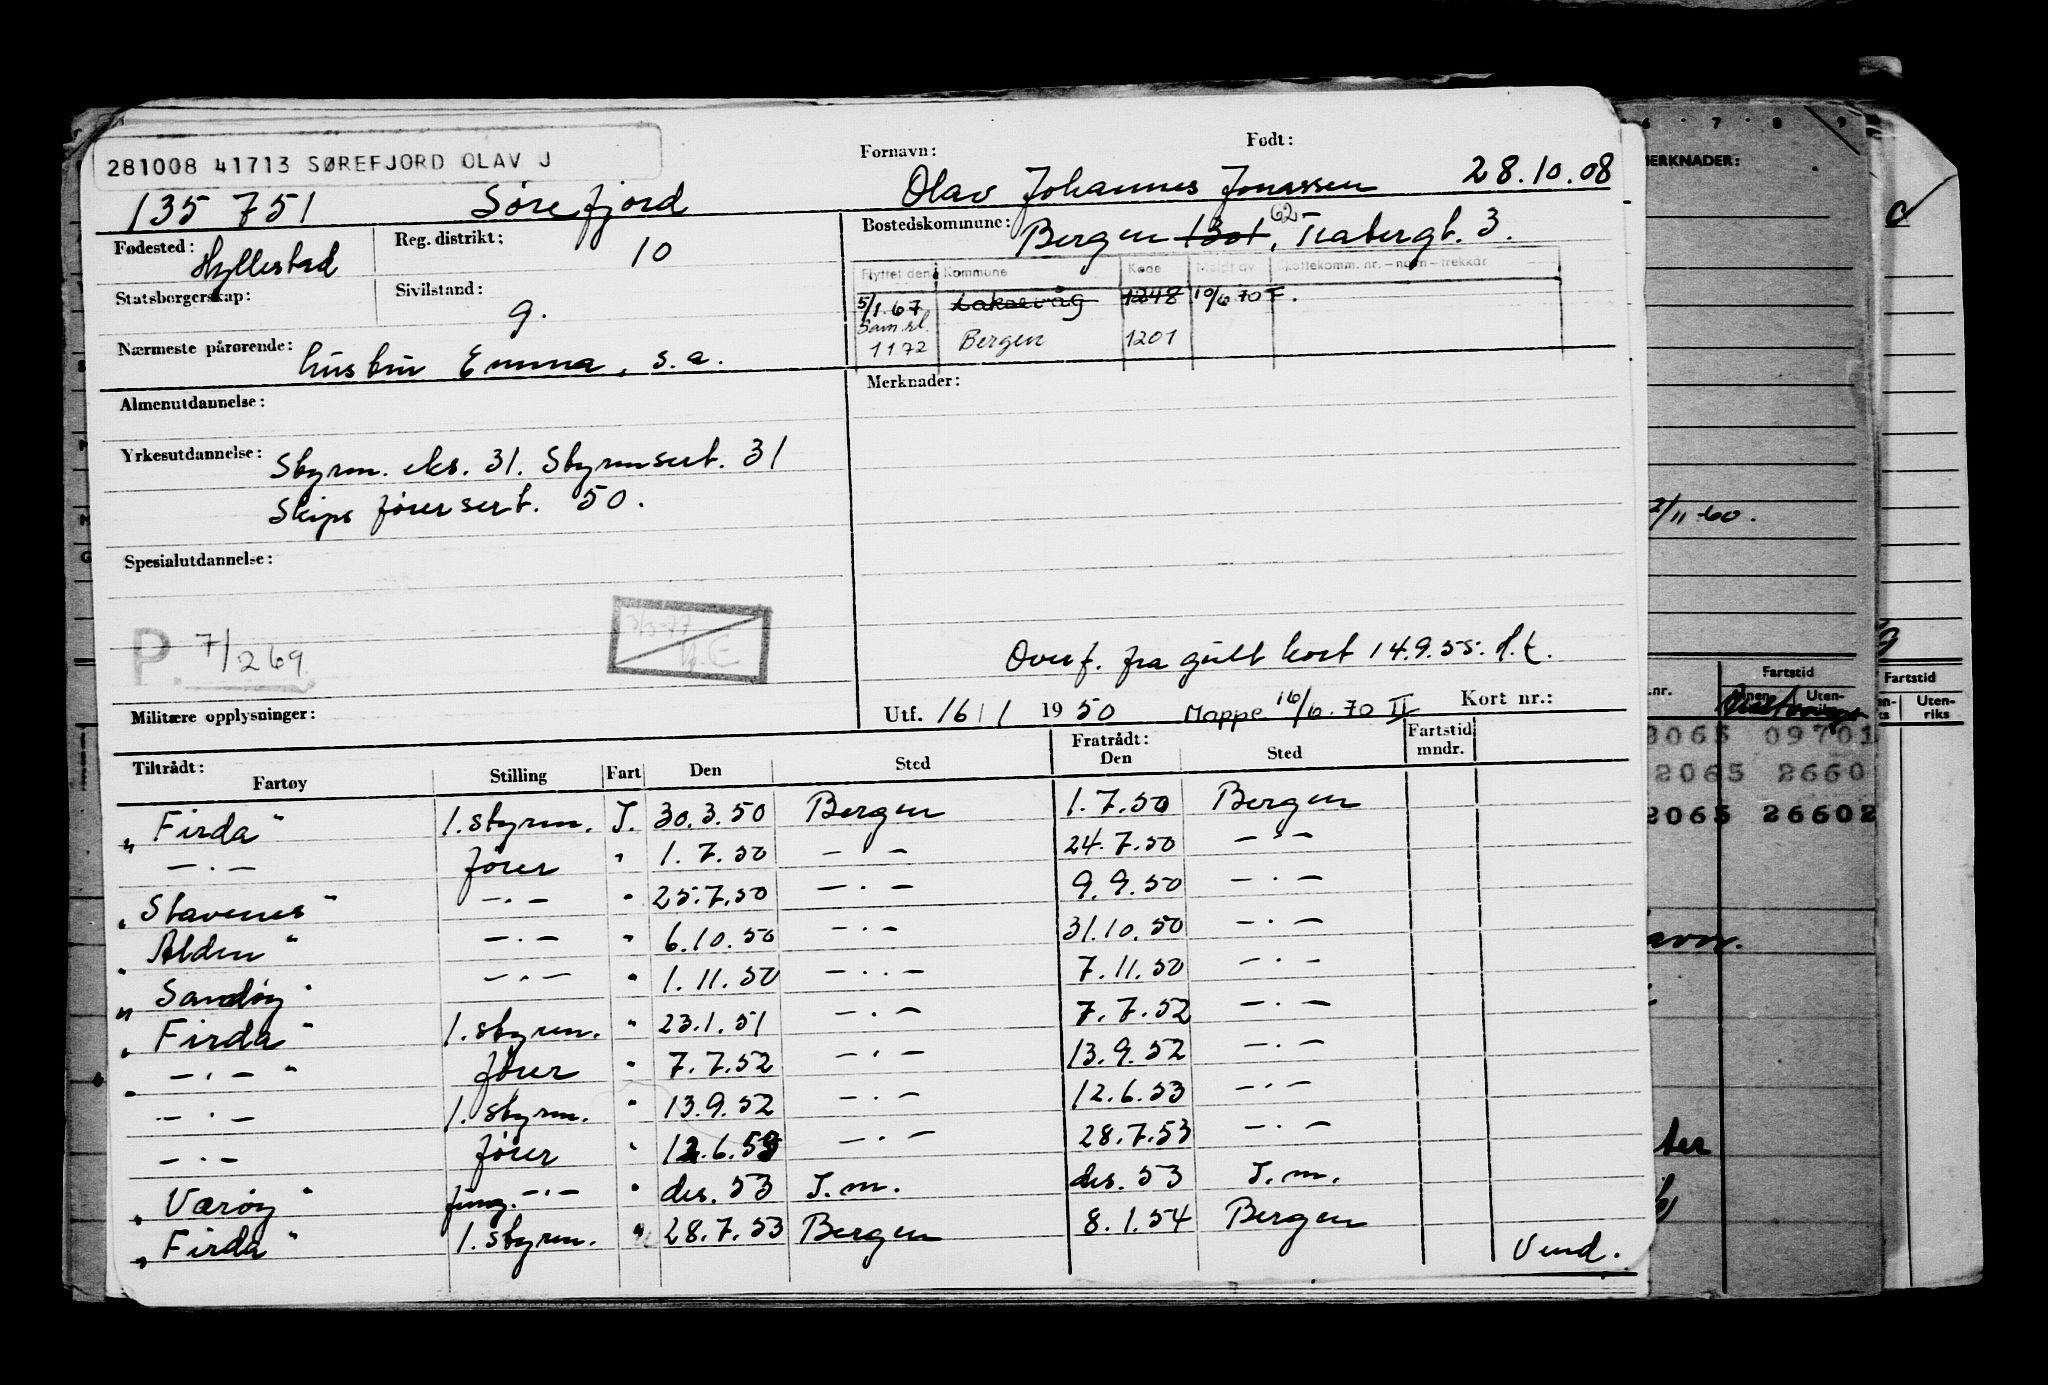 281008 41713 SØREFJORD OLAV J
Fornavn: Født:
135 751 Sørefjord Olav Johannes Jonassen 28.10.08
Fødested: Hyllestad Reg. distrikt: 10 Bostedskommune: Bergen 1301, 62 Trabergt. 3.
Statsborgerskap: Sivilstand: g.
Flyttet den Kommune Kode Meldt av Skattekomm. nr. – navn – trekkår
5/1.67 Laksevåg 1248 10/6 70 F.
Sam.sl. 1172 Bergen 1201
Nærmeste pårørende: hustru Emma, s.a.
Almenutdannelse: Merknader:
Yrkesutdannelse: Styrm. eks. 31. Styrmsert. 31
Skipsførersert. 50.
Spesialutdannelse:
P. 7/2 69
Overf. fra gult kort 14.9.55.
Militære opplysninger: Utf. 16/1 1950 Mappe 16/6.70 II Kort nr.:
Tiltrådt: Fratrådt: Fartstid mndr.
Fartøy Stilling Fart Den Sted Den Sted
"Firda" 1. styrm. I. 30.3.50 Bergen 1.7.50 Bergen
— . — fører " 1.7.50 — . — 24.7.50 — " —
"Stavenes" — . — " 25.7.50 — . — 9.9.50 — . —
"Alden" — . — " 6.10.50 — . — 31.10.50 — . —
"Sandøy" — . — " 1.11.50 — . — 7.11.50 — . —
"Firda" 1. styrm. " 23.1.51 — . — 7.7.52 — . —
" — . — " fører " 7.7.52 — . — 13.9.52 — . —
— . — 1. styrm. " 13.9.52 — . — 12.6.53 — . —
— . — fører " 12.6.53 — . — 28.7.53 — . —
"Værøy" fung. — . — " des. 53 I.m. des. 53 I.m.
"Firda" 1. styrm. " 28.7.53 Bergen 8.1.54 Bergen
Vend.
6 7 8 9
MERKNADER:
2/11-60.
.nr. Fartstid Uten-
Fartstid
Uten-
riks
3065 09701
2065 2660
2065 26602